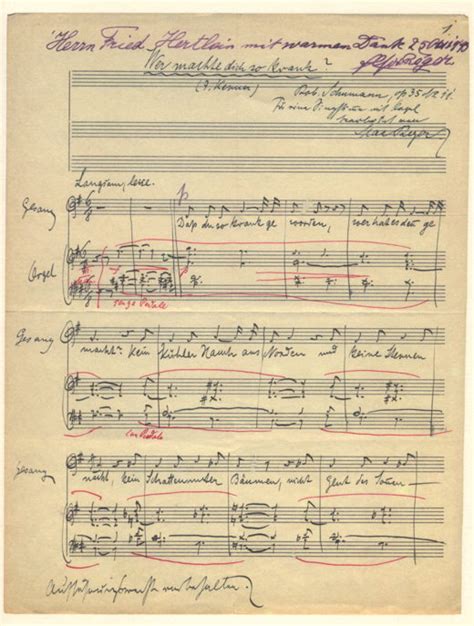 1.
Herrn Fried Hertlein mit warmem Dank
Wer machte dich so krank?
(J. Kerner)
Rob. Schumann, op 35 No 11.
Für eine Singstimme mit Orgel
Max Reger
Langsam, leise.
Gesang
Daß du so krank ge worden, wer hat es denn ge
Orgel
Gesang
macht? kein kühler Hauch aus Norden und keine Sternen
Gesang
nacht, kein Schatten unter Bäumen, nicht Glut des Sonnen
Aufführungsrecht vorbehalten.